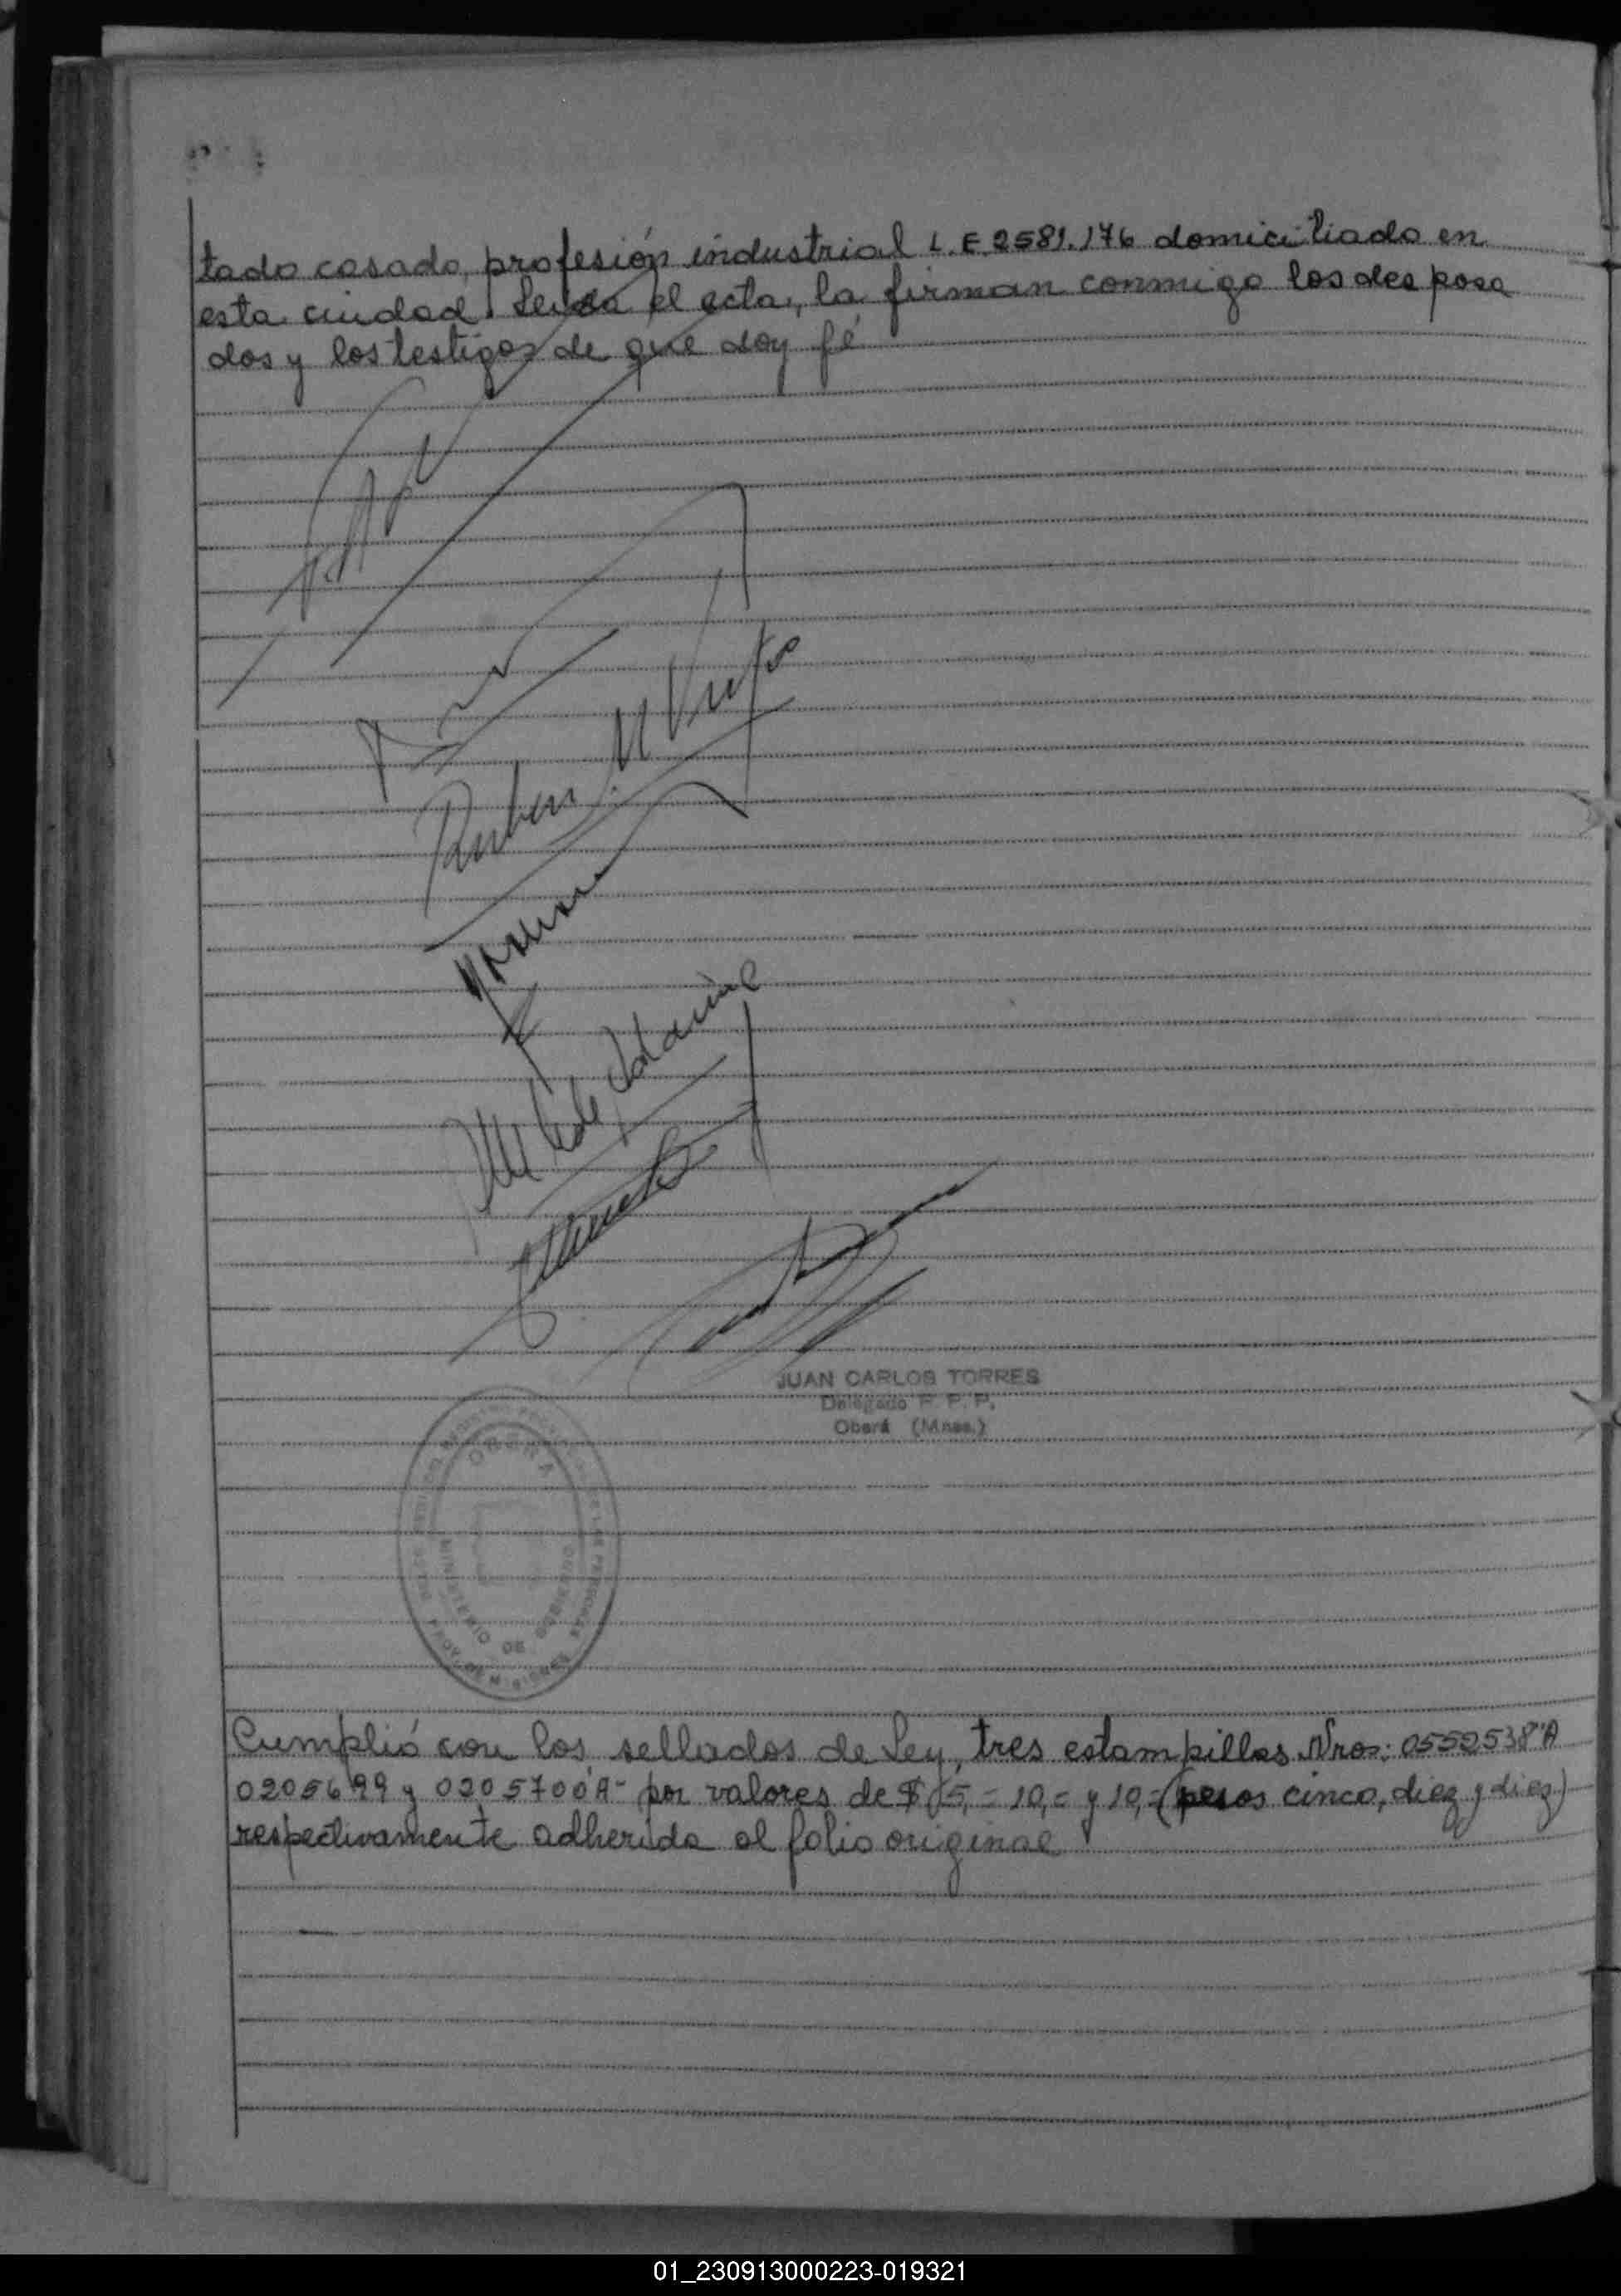 tado casado, profesión industrial L.E. 2581.176 domiciliado en
esta ciudad. Leida el acta, la firman conmigo los desposa
dos y los testigos de que doy fé
Ruben M
JUAN CARLOS TORRES
Delegado P. P. P.
Oberá (Mnes.)
OBERA
MINISTERIO DE GOBIERNO
Cumplió con los sellados de Ley, tres estampillas Nros: 0552538"A
0205699 y 0205700"A" por valores de $ 5,= 10,= y 10,= (pesos cinco, diez y diez)
respectivamente adherida al folio original
01_230913000223-019321